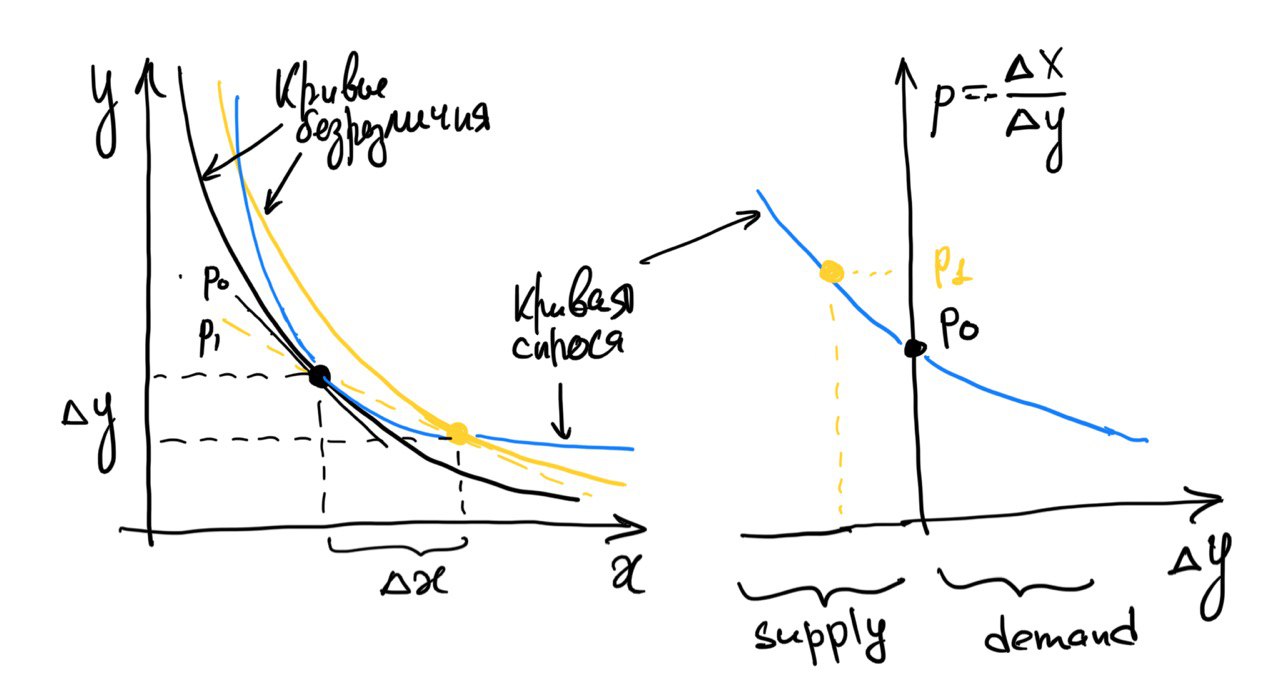 y
Кривые
безразличия
P₀
P₁
Δy
Кривая
спроса
Δx
x
p = - Δx / Δy
P₁
P₀
Δy
supply
demand